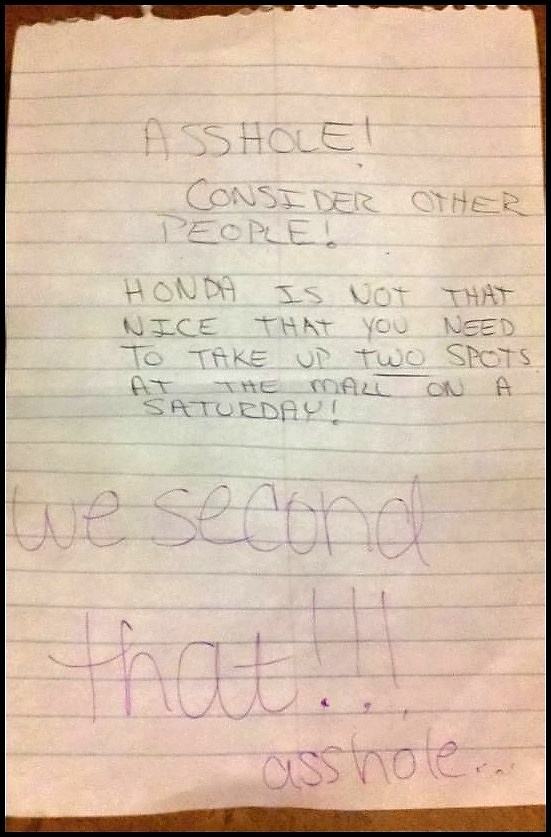 ASSHOLE!
CONSIDER OTHER
PEOPLE!
HONDA IS NOT THAT
NICE THAT YOU NEED
TO TAKE UP TWO SPOTS
AT THE MALL ON A
SATURDAY!
we second
that!!!
asshole...